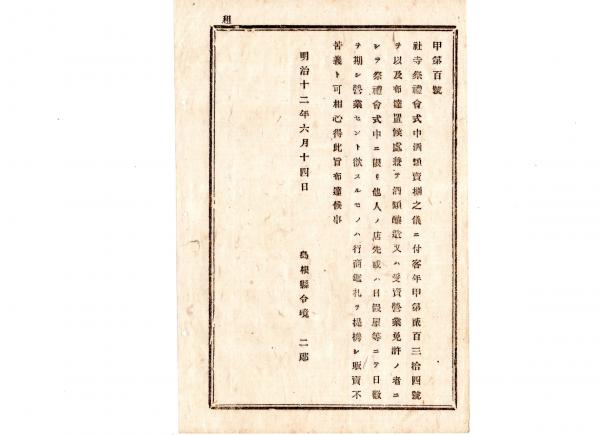 租
甲第百號
社寺祭禮會式中酒類賣捌之儀ニ付客年甲第貳百三拾四號
ヲ以及布達置候處兼テ酒類釀造又ハ受賣營業免許ノ者ニ
シテ祭禮會式中ニ限リ他人ノ店先或ハ日假屋等ニテ日數
ヲ期シ營業セント欲スルモノハ行商鑑札ヲ提携シ販賣不
苦義ト可相心得此旨布達候事
明治十二年六月十四日
島根縣令境二郎